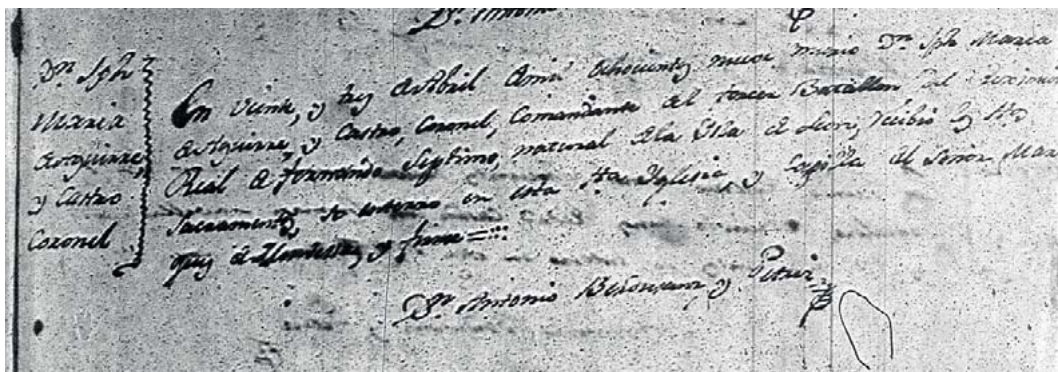 Dn. Antonio
Dn Sph
Maria
de Aguirre,
y Castro
Coronel
En veinte, y seis de Abril de mil ochocientos nueve murio Dn. Sph Maria
de Aguirre, y Castro, Coronel, Comandante del tercer Batallon del
Real de Fernando Septimo, natural de la Isla de Leon, recibio los Stos
Sacramentos, se enterro en esta Sta Iglesia, y Capilla del Señor Mar
ques de y firme =
Dn. Antonio y